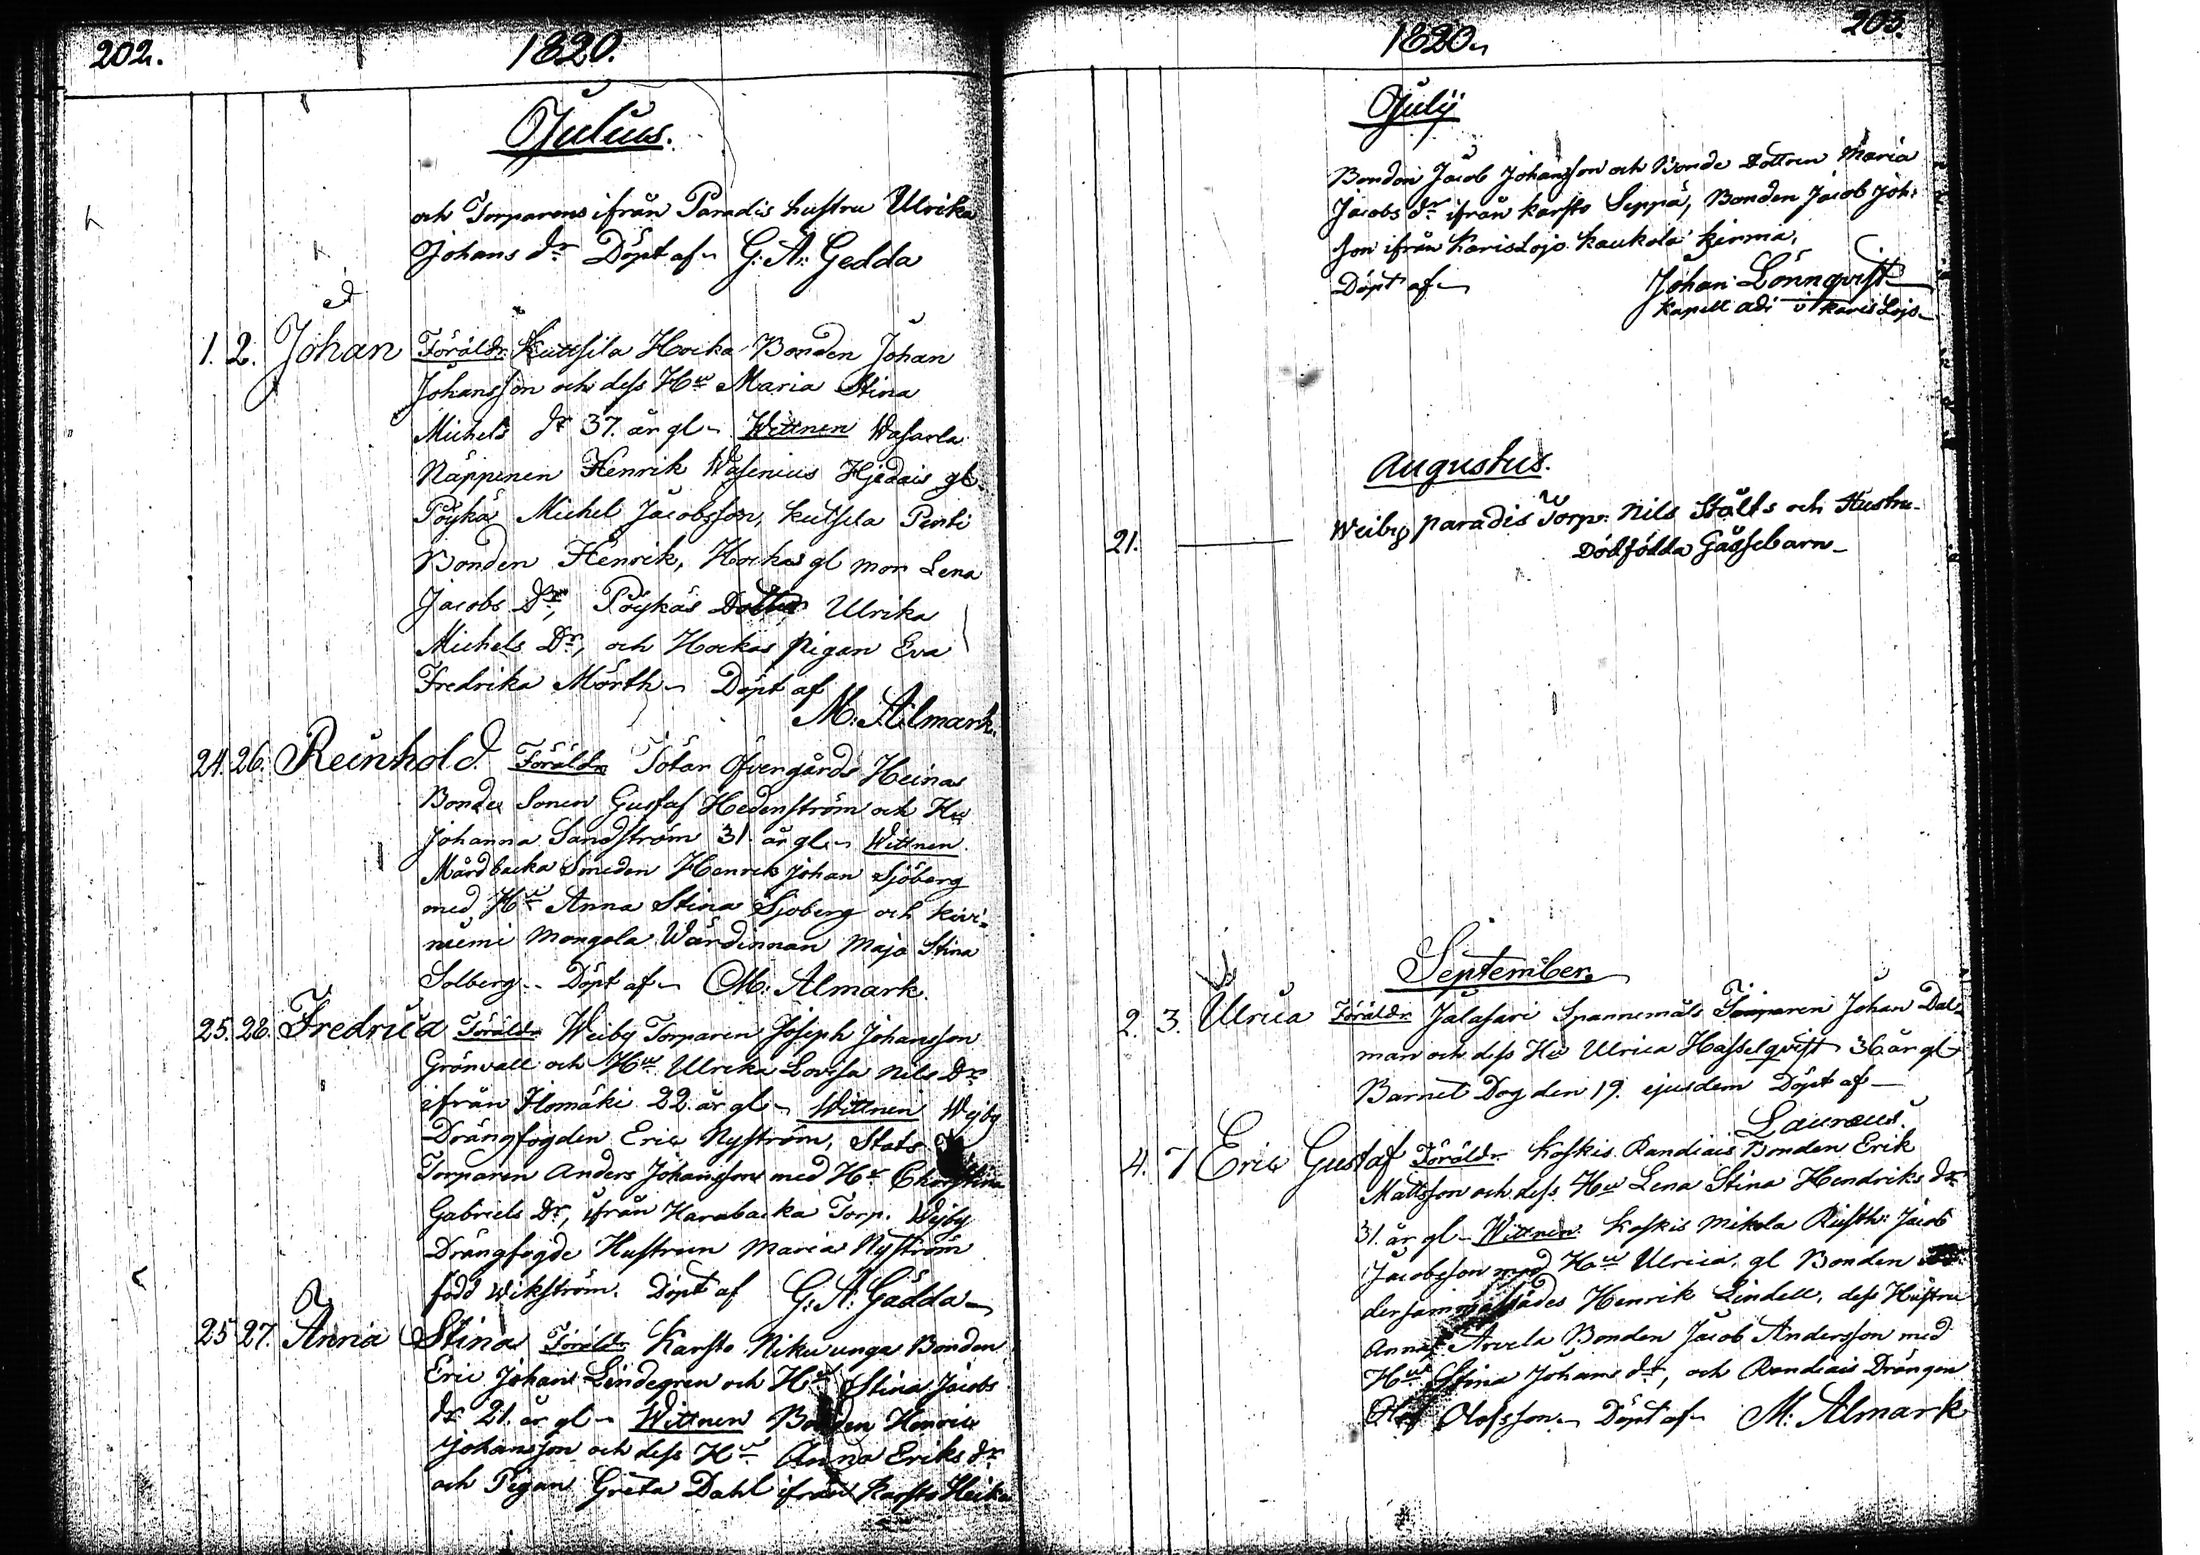 202.
1820.
Julius.
och Torparens ifrån Paradis hustru Ulrika
Johans dr Döpt af G: A: Gedda
1. 2. Johan Föräldr. Kuttsila Hocka Bonden Johan
Johansson och dess Hu Maria Stina
Michels dr 37. år gl. Wittnen Wasarla
Näppinen Henrik Wasenius Hjedais gl.
Pöykä Michel Jacobsson, Kutsila Penti
Bonden Henrik, Hockas gl mor Lena
Jacobs Dr, Pöykäs Dotter Ulrika
Michels Dr, och Hockas pigan Eva
Fredrika Mörth Döpt af
M: Almark.
24. 26. Reinhold. Föräldr Tötar Öfvergårds Heinas
Bonde Sonen Gustaf Hedenström och Hu
Johanna Sandström 31 år gl. Wittnen
Mårdbacka Smeden Henrik Johan Sjöberg
med Hu Anna Stina Sjöberg och Kivi-
niemi Mongola Wärdinnan Maja Stina
Solberg.. Döpt af M: Almark.
25. 28. Fredrica Föräldr Weiby Torparen Joseph Johansson
Grönvall och Hu Ulrika Lovisa Nils Dr
ifrån Ilomäki 22 år gl. Wittnen Wejby
Drängfogden Eric Nyström, Stats
Torparen Anders Johansson med Hu Christina
Gabriels Dr, ifrån Harabacka Torp. Wejby
Drängfogde Hustrun Maria Nyström
född Wikström. Döpt af G: A: Gädda
25 27. Anna Stina Föräldr Karsto Niku unga Bonden
Eric Johans Lindegren och Hu Stina Jacobs
dr 21. år gl Wittnen Bonden Henric
Johansson och dess Hu Anna Eriks dr
och Pigan Greta Dahl ifrån Karsto Heika
1820.
203.
July
Bonden Jacob Johansson och Bonde Dottren Maria
Jacobs dr ifrån Karsto Seppä, Bonden Jacob Joh:
son ifrån Karislojo Kaukola Kirma,
Döpt af Johan Lönnqvist
Kapell adj i Karis Lojo
Augustus.
21. Weiby paradis Torp. Nils Stålts och Hustru
Dödfödda Gåssebarn
September
2. 3. Ulrica Föräldr. Jalasari Spannemäls Torparen Johan Dal-
man och dess Hu Ulrica Hasselqvist 36 år gl
Barnet Dog den 19. ejusdem Döpt af
Lauraeus.
4. 7 Eric Gustaf Föräldr. Koskis Randiais Bonden Erik
Mattsson och dess Hu Lena Stina Hendriks dr
31. år gl Wittnen Koskis Mikola Rusth: Jacob
Jacobsson med Hu Ulrica, gl Bonden
dersammastädes Henrik Lindell, dess Hustru
Anna, Arvela Bonden Jacob Andersson med
Hu Stina Johans dr, och Randiais Drängen
Olof Olofsson Döpt af M: Almark